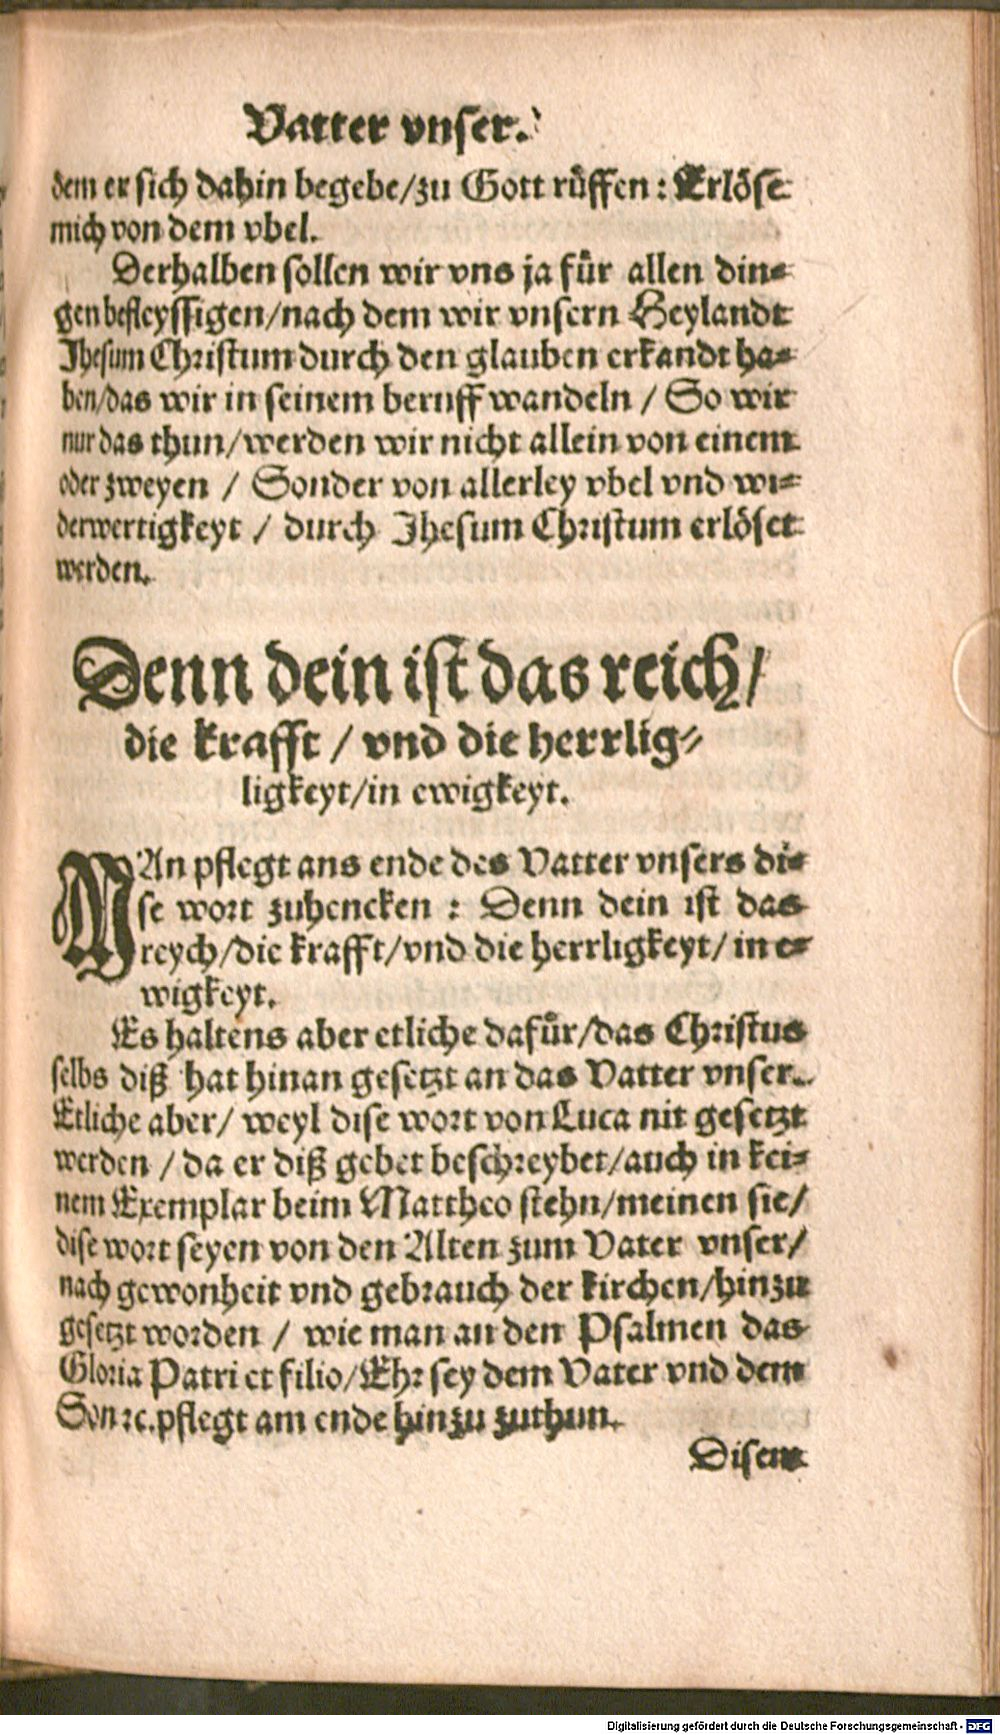 Vatter vnser.
dem er sich dahin begebe/zu Gott růffen: Erlöse
mich von dem vbel.
Derhalben sollen wir vns ja fůr allen din-
gen befleyssigen/nach dem wir vnsern Heylandt
Jhesum Christum durch den glauben erkandt ha-
ben/das wir in seinem beruff wandeln / So wir
nur das thun/werden wir nicht allein von einem
oder zweyen / Sonder von allerley vbel vnd wi-
derwertigkeyt / durch Jhesum Christum erlöset
werden.
Denn dein ist das reich/
die krafft / vnd die herrlig-
ligkeyt/in ewigkeyt.
MAn pflegt ans ende des Vatter vnsers di-
se wort zuhencken : Denn dein ist das
reych/die krafft/vnd die herrligkeyt/in e-
wigkeyt.
Es haltens aber etliche dafůr/das Christus
selbs diß hat hinan gesetzt an das Vatter vnser.
Etliche aber/ weyl dise wort von Luca nit gesetzt
werden / da er diß gebet beschreybet/auch in kei-
nem Exemplar beim Mattheo stehn/meinen sie/
dise wort seyen von den Alten zum Vater vnser/
nach gewonheit vnd gebrauch der kirchen/hinzu
gesetzt worden / wie man an den Psalmen das
Gloria Patri et filio/Ehr sey dem Vater vnd dem
Son ꝛc.pflegt am ende hinzu zuthun.
Disem
Digitalisierung gefördert durch die Deutsche Forschungsgemeinschaft - DFG